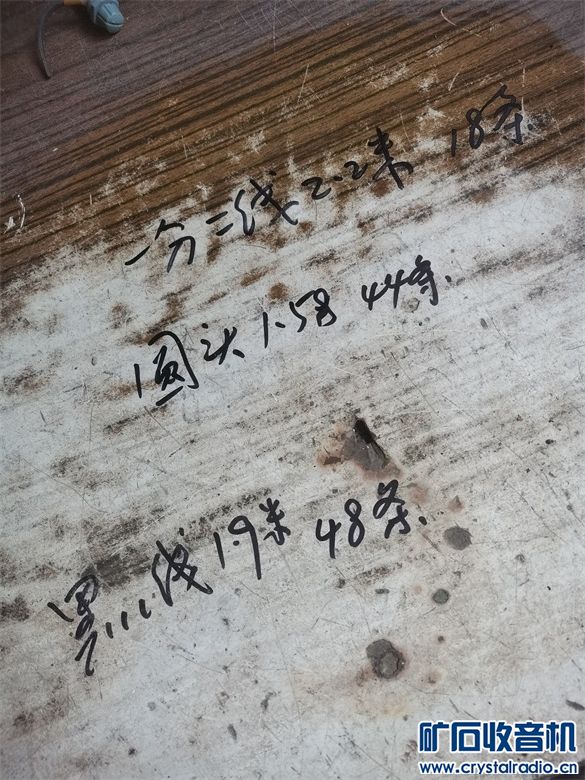 一分二线2.2米 18条
圆头1.58 44条
黑线1.9米 48条
矿石收音机
www.crystalradio.cn